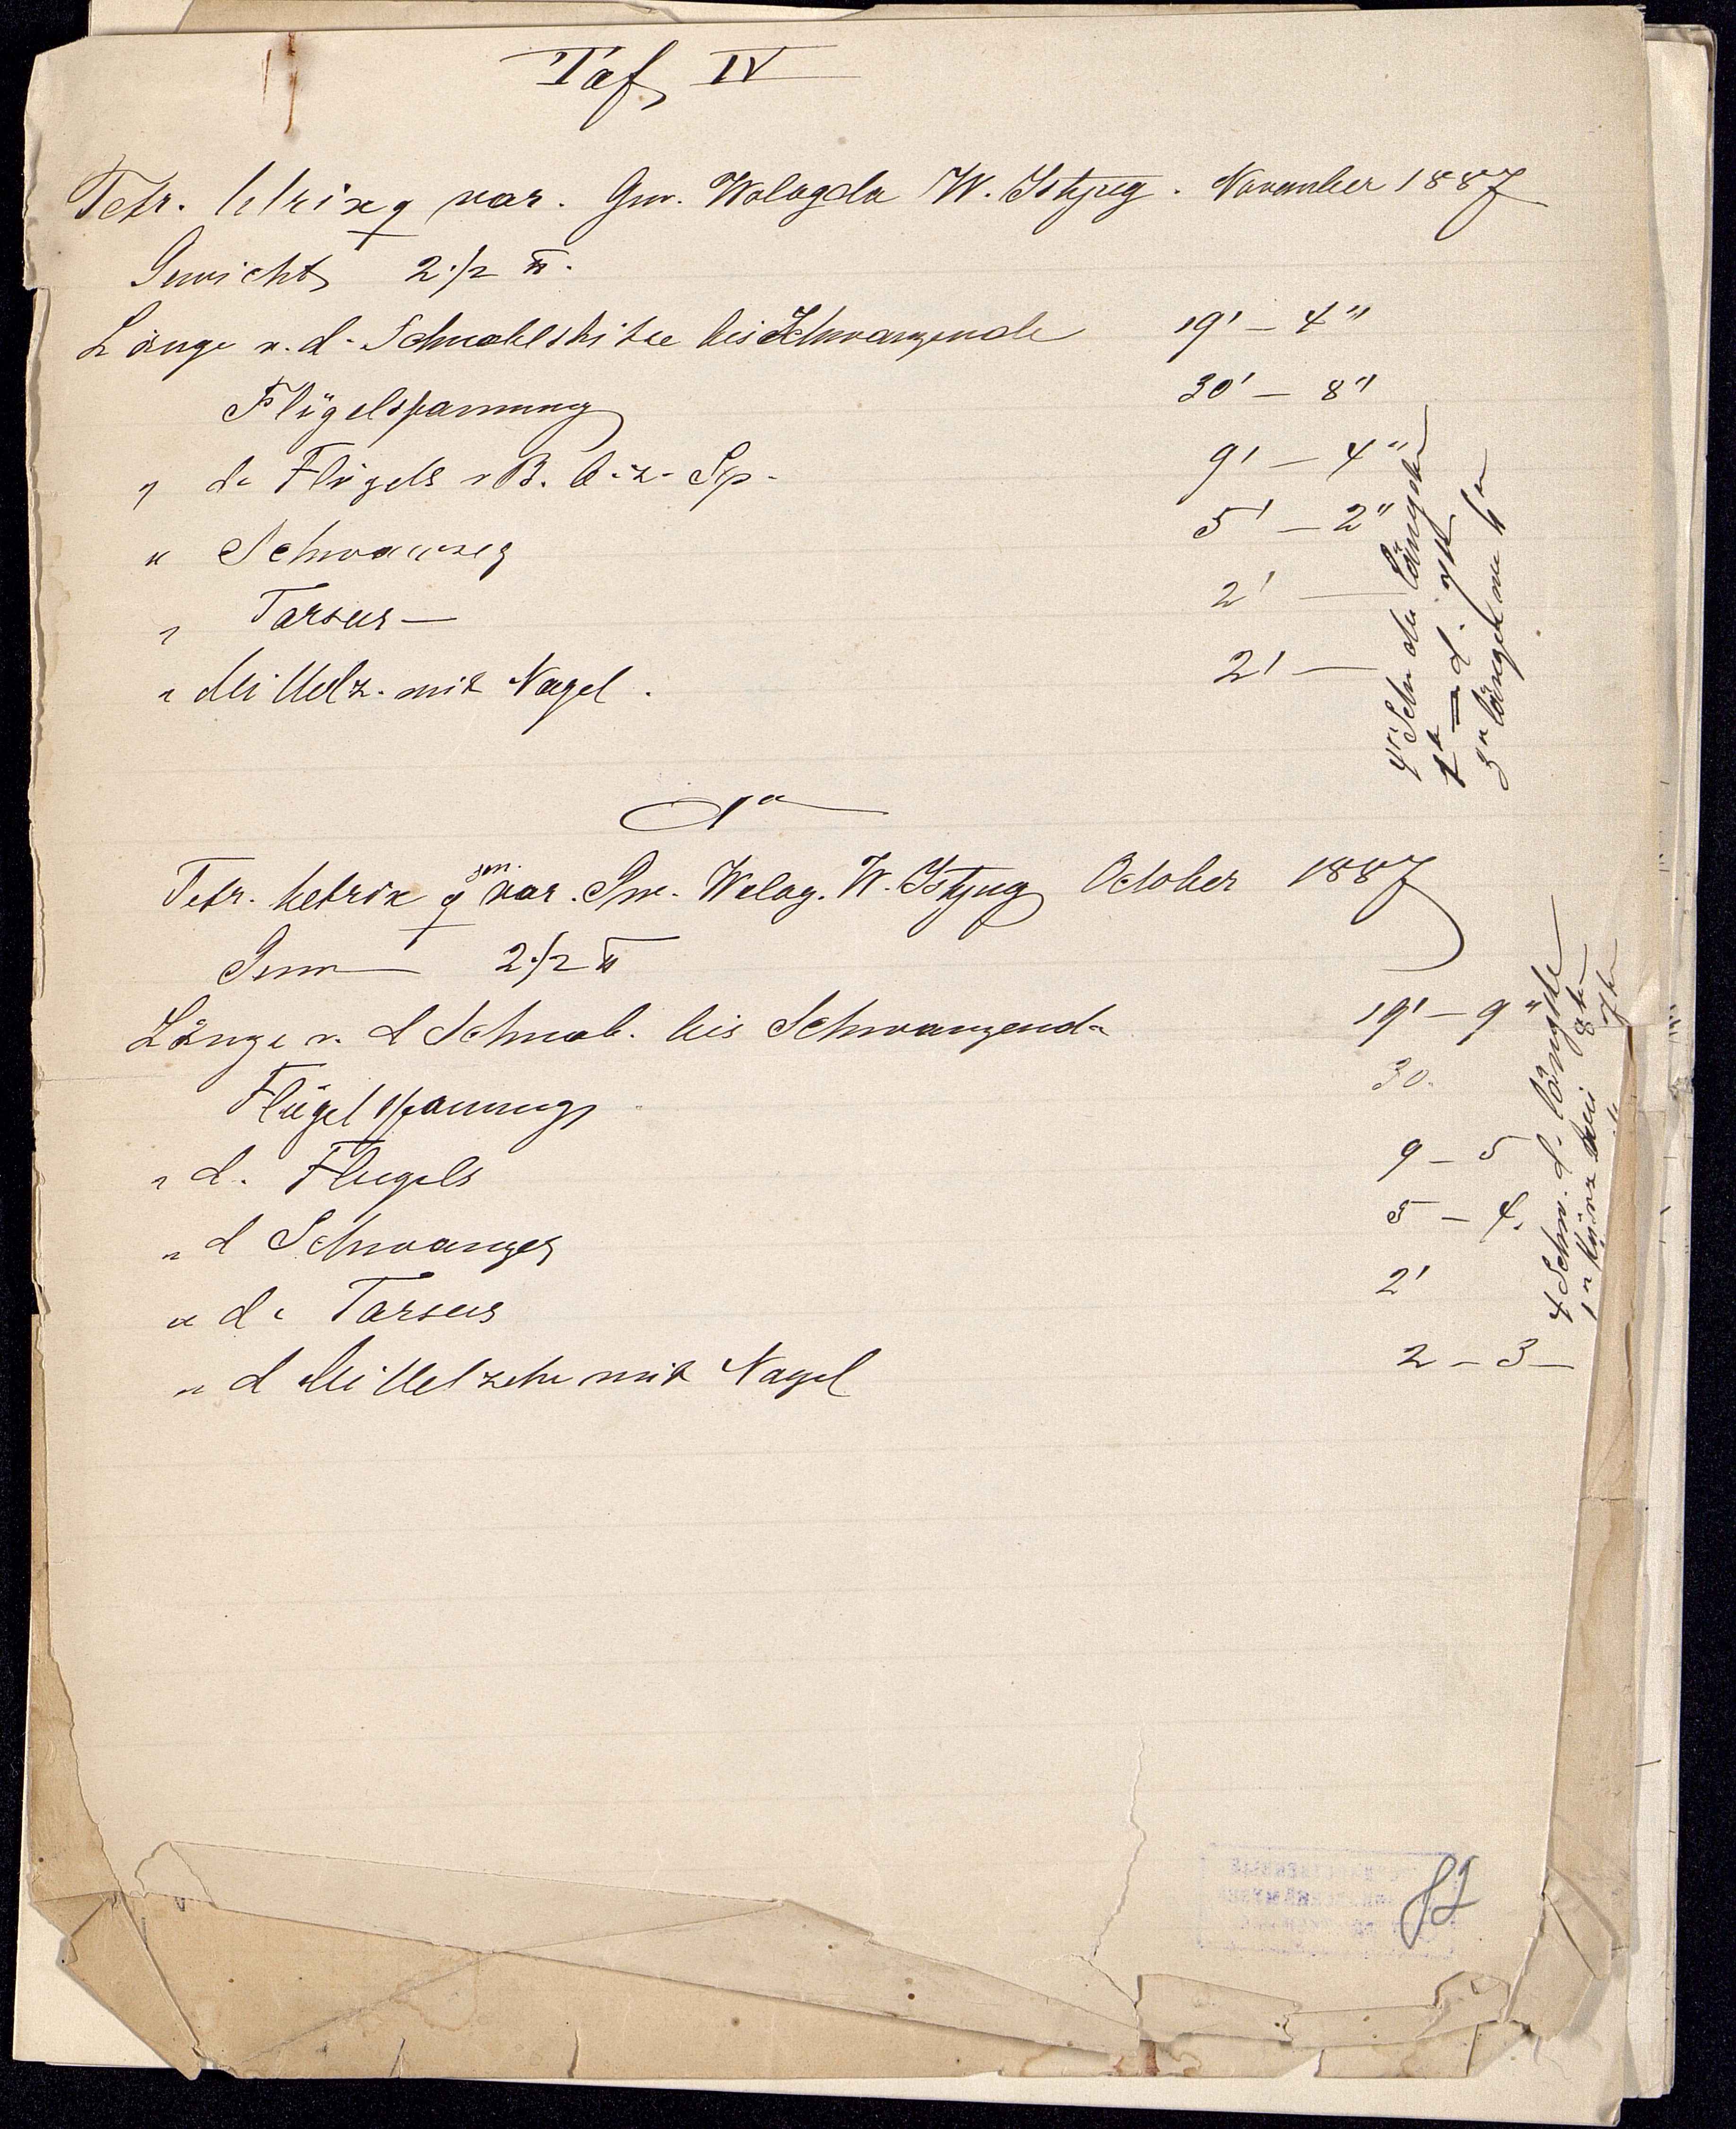 Taf. IV
Tetr. tetrix ♀ var. Gouv. Wologda W. Ustjug. November 1887
Gewicht 2 1/2 ℔.
Länge v. d. Schnabelspitze bis Schwanzende 19' — 4"
Flügelspannung 30' — 8"
" d. Flügels v B. b. z. Sp. 9' — 4"
" Schwanzes 5' — 2"
" Tarsus — 2' —
" Mittelz. mit Nagel. 2' —
4te Schw. die längste
Tetr. tetrix ♀ sen. var. Gouv. Wolog. W. Ustjug October 1887
Gew — 2 1/2 ℔
Länge v. d Schnab. bis Schwanzend. 19' — 9"
Flügelspannung 30.
" d. Flügels 9 — 5
" d Schwanzes 5 — 4.
" d. Tarsus 2'
" d Mittelzehe mit Nagel 2 — 3 —
4 Schw. d. längste
82